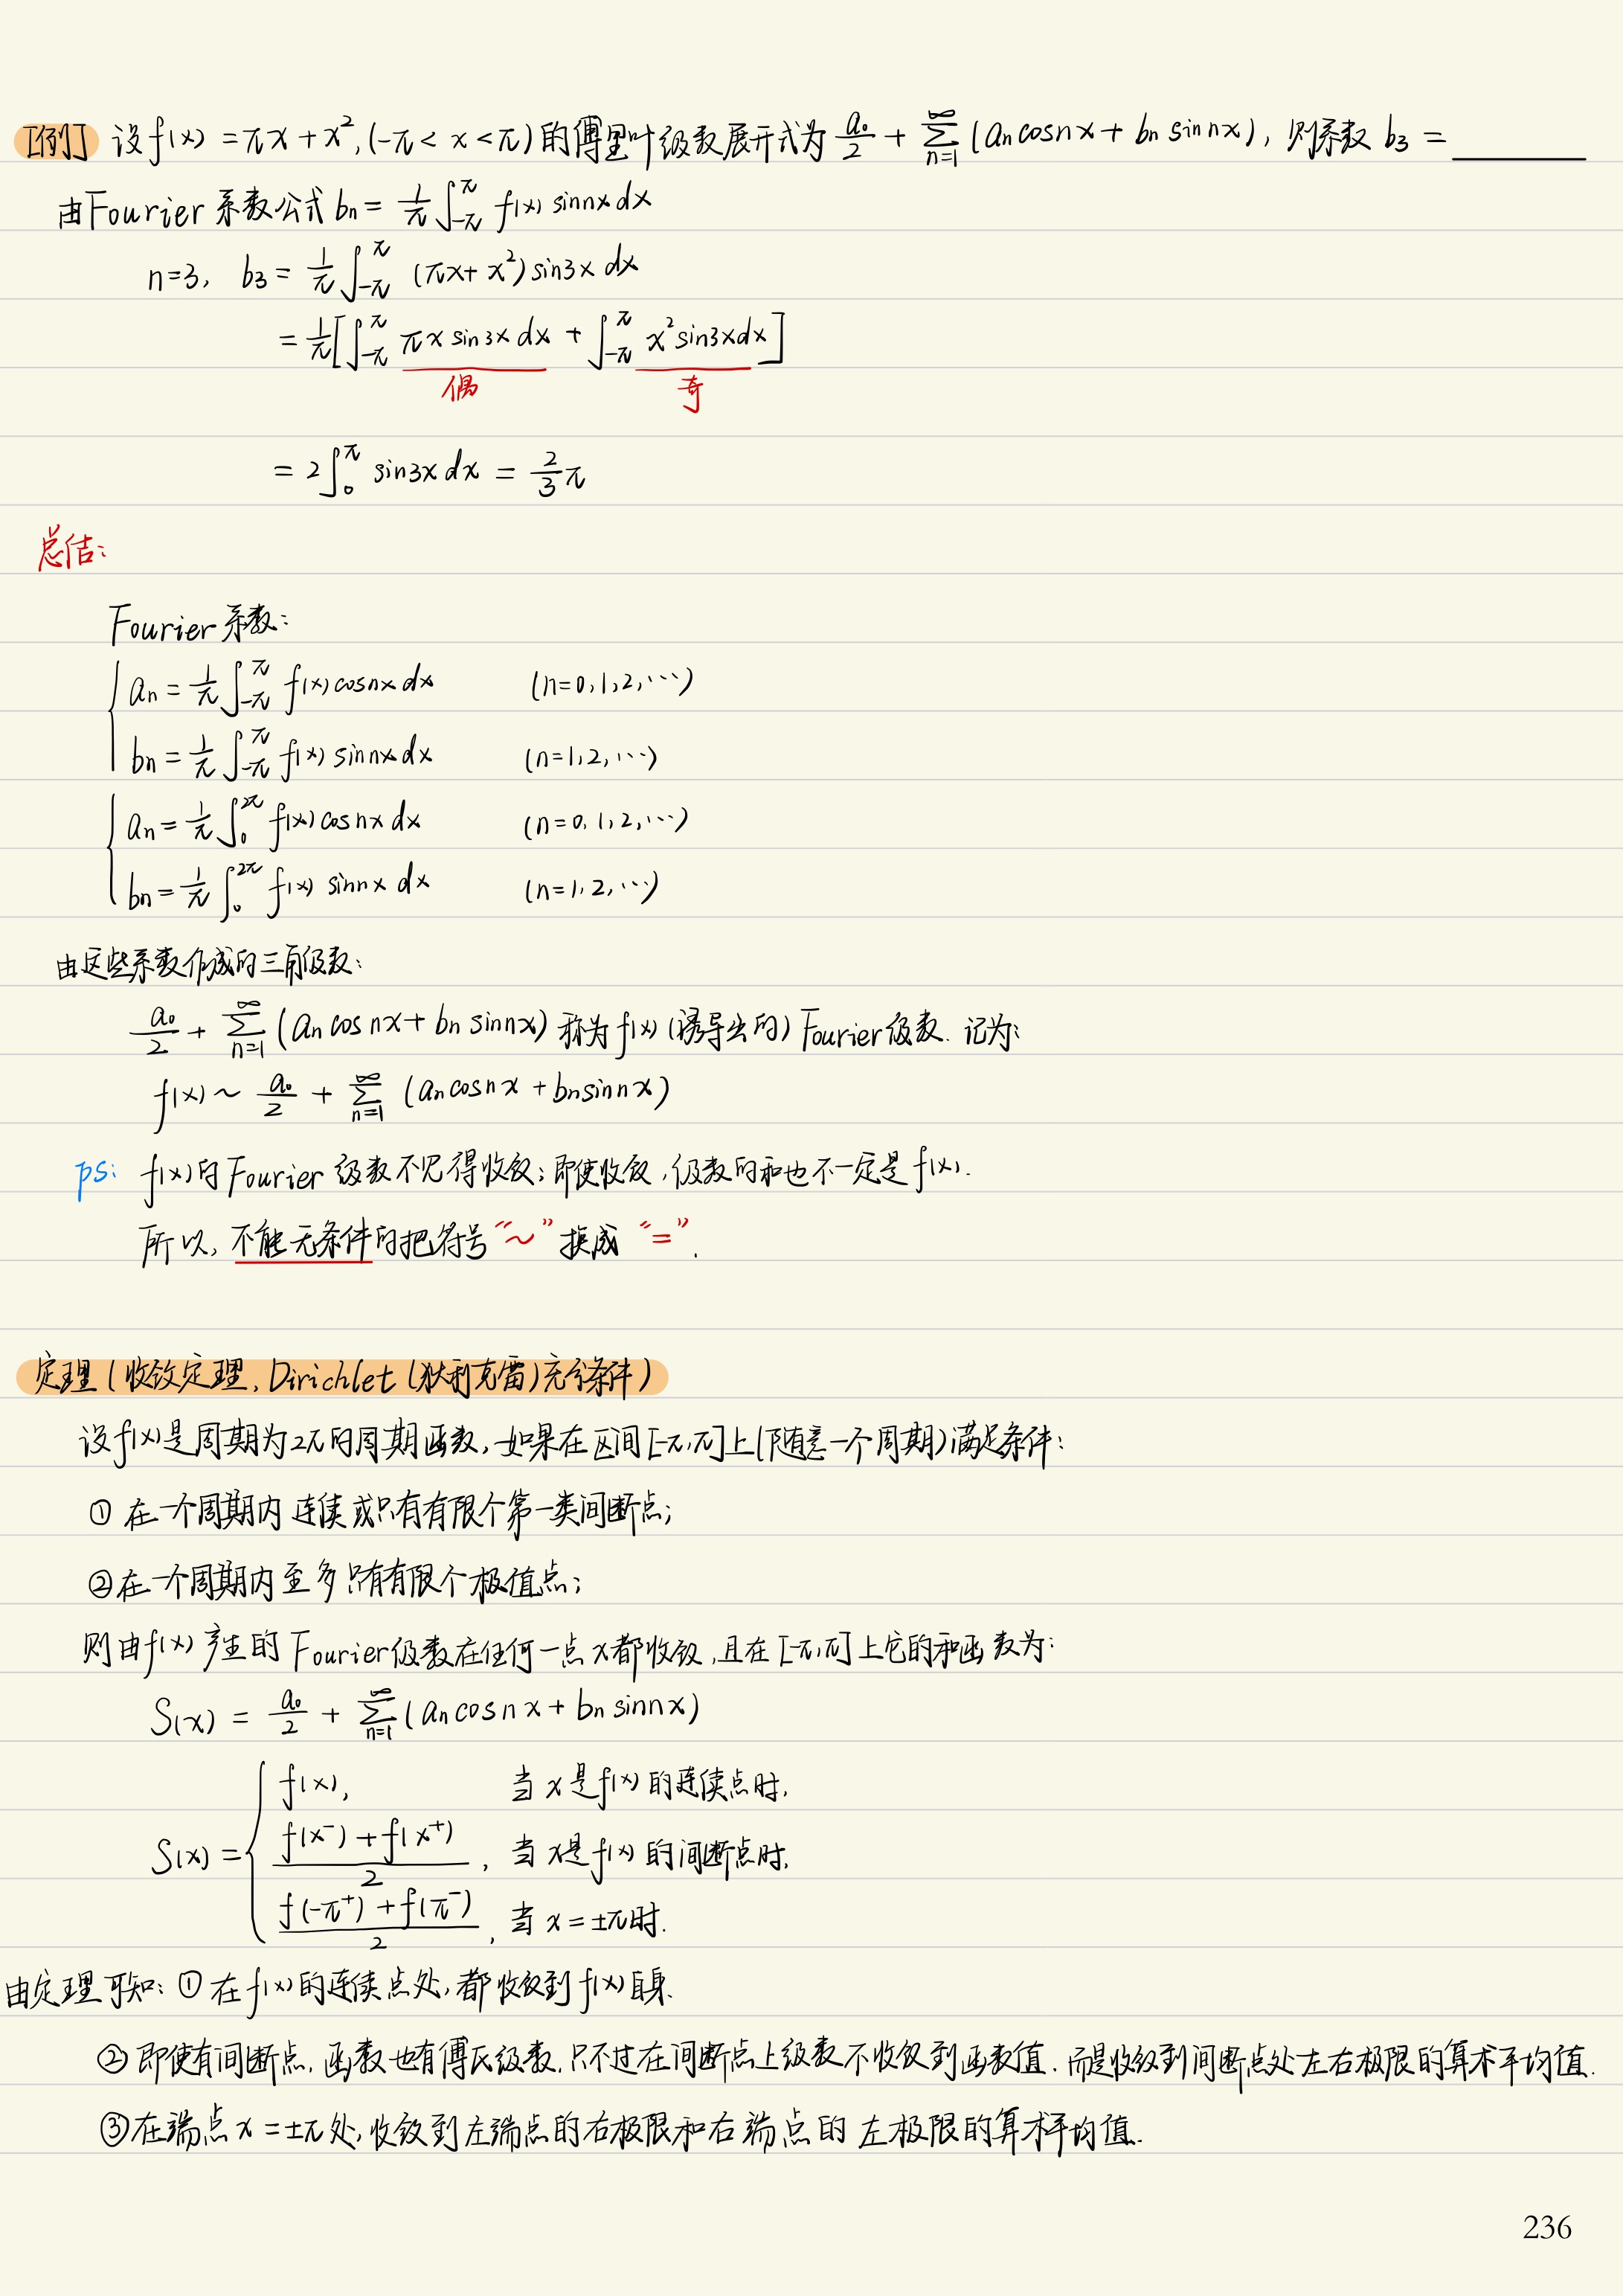 [例] 设f(x) = πx + x², (-π < x < π) 的傅里叶级数展开式为 a₀/2 + ∑_{n=1}^{∞} (aₙcosnx + bₙ sin nx), 则系数 b₃ = ______
由Fourier 系数公式 bₙ = 1/π ∫_{-π}^{π} f(x) sinnx dx
n=3, b₃ = 1/π ∫_{-π}^{π} (πx + x²) sin3x dx
= 1/π [∫_{-π}^{π} πx sin3x dx + ∫_{-π}^{π} x² sin3x dx]
偶 奇
= 2∫_{0}^{π} sin3x dx = 2/3 π
总结:
Fourier 系数:
{ aₙ = 1/π ∫_{-π}^{π} f(x) cosnx dx (n=0,1,2,…)
bₙ = 1/π ∫_{-π}^{π} f(x) sinnx dx (n=1,2,…)
{ aₙ = 1/π ∫_{0}^{2π} f(x) cosnx dx (n=0,1,2,…)
bₙ = 1/π ∫_{0}^{2π} f(x) sinnx dx (n=1,2,…)
由这些系数作成的三角级数:
a₀/2 + ∑_{n=1}^{∞} (aₙ cos nx + bₙ sinnx) 称为f(x) (诱导出的) Fourier级数. 记为:
f(x) ~ a₀/2 + ∑_{n=1}^{∞} (aₙcosnx + bₙsinnx)
ps: f(x)的Fourier 级数不见得收敛; 即使收敛, 级数的和也不一定是f(x).
所以, 不能无条件的把符号“~”换成“=”.
定理 (收敛定理, Dirichlet (狄利克雷)充分条件)
设f(x)是周期为2π的周期函数, 如果在区间[-π,π]上(随意一个周期)满足条件:
① 在一个周期内连续或只有有限个第一类间断点;
② 在一个周期内至多只有有限个极值点;
则由f(x)产生的Fourier级数在任何一点x都收敛, 且在[-π,π]上它的和函数为:
S(x) = a₀/2 + ∑_{n=1}^{∞} (aₙcosnx + bₙ sinnx)
f(x), 当x是f(x)的连续点时,
S(x) = { (f(x⁻)+f(x⁺))/2, 当x是f(x)的间断点时,
(f(-π⁺)+f(π⁻))/2, 当x=±π时.
由定理可知: ① 在f(x)的连续点处, 都收敛到f(x)自身.
② 即使有间断点, 函数也有傅氏级数, 只不过在间断点上级数不收敛到函数值. 而是收敛到间断点处左右极限的算术平均值.
③ 在端点x=±π处, 收敛到左端点的右极限和右端点的左极限的算术平均值.
236